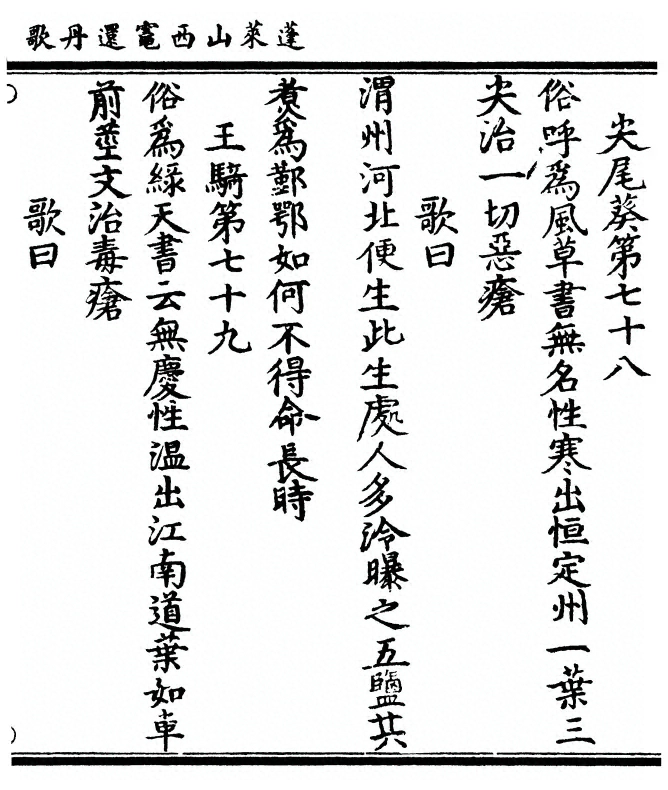 蓬萊山西竈還丹歌
尖尾葵第七十八
俗呼爲風草書無名性寒出恒定州一葉三
尖治一切惡瘡
歌曰
渭州河北便生此生處人多泠曝之五鹽共
煑爲鄞鄂如何不得命長時
王騎第七十九
俗爲綠天書云無慶性温出江南道葉如車
前莖文治毒瘡
歌曰